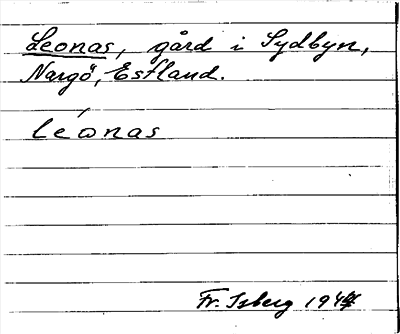 Leonas, gård i Sydbyn,
Nargö, Estland.
léonas
Fr. Isberg 1944